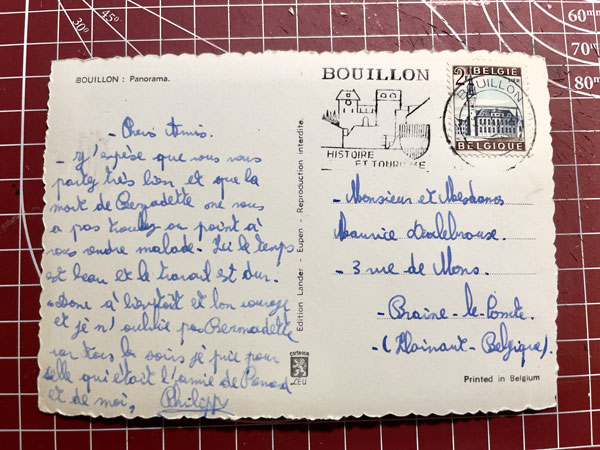 BOUILLON : Panorama.
- Chers Amis.
- J'espèse que vous vous
portez très bien et que la
mort de Bernadette ne vous
a pas troublez au point à
vous rendre malade. Ici le temps
est beau et la travail est dur.
Donc à bientôt et bon courage
et je n'oublie pas Bernadette
car tous les soirs je prie pour
elle qui était l'amie de
et de moi,
Philippe
Edition Lander - Eupen - Reproduction interdite.
BOUILLON
HISTOIRE
ET TOURISME
2F BELGIË
BELGIQUE
BOUILLON
- Monsieur et Mesdames
Maurice
- 3 rue de Mons.
- Braine-le-Comte.
- (Hainaut - Belgique).
CEU
Printed in Belgium
30°
45°
60mm
70mm
80mm